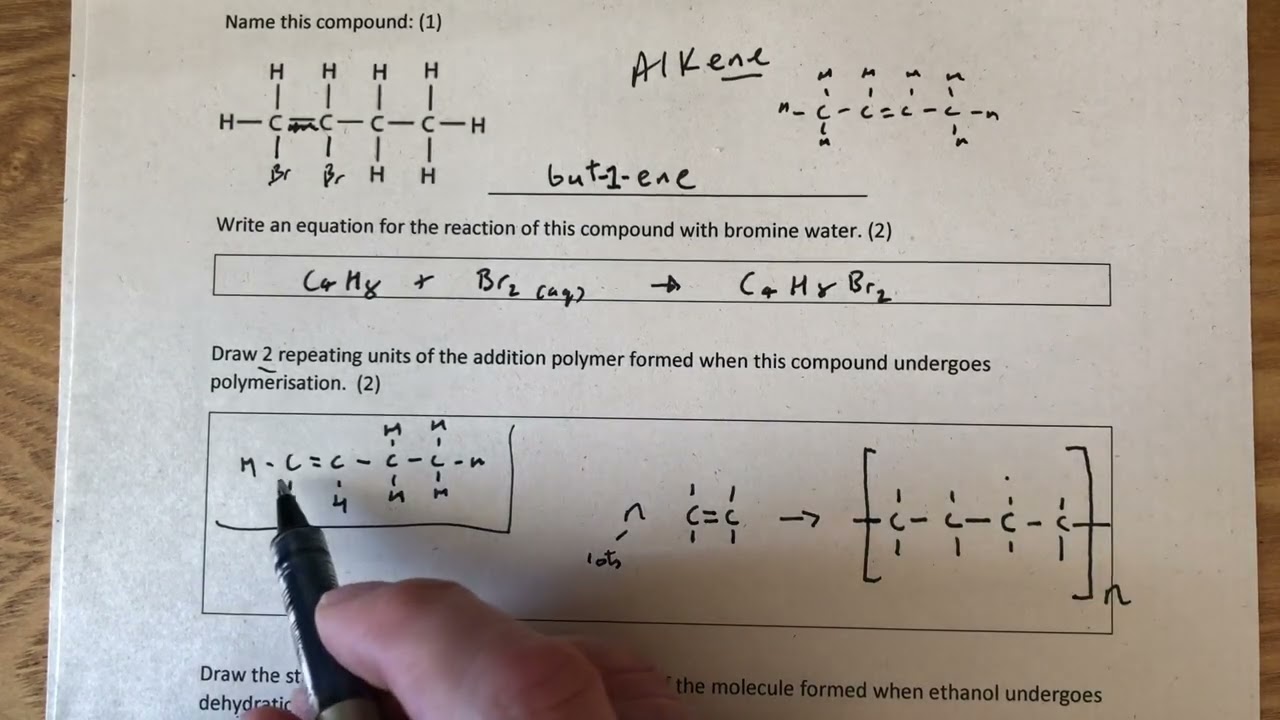 Name this compound: (1)
Alkene
H H H H
H—C=C—C—C—H
Br Br H H
H H H H
H-C-C=C-C-H
H H
but-1-ene
Write an equation for the reaction of this compound with bromine water. (2)
C4H8 + Br2 (aq) → C4H8Br2
Draw 2 repeating units of the addition polymer formed when this compound undergoes
polymerisation. (2)
H H
H-C=C-C-C-H
H H H
n C=C → [-C-C-C-C-]n
lots
Draw the st
the molecule formed when ethanol undergoes
dehydratic